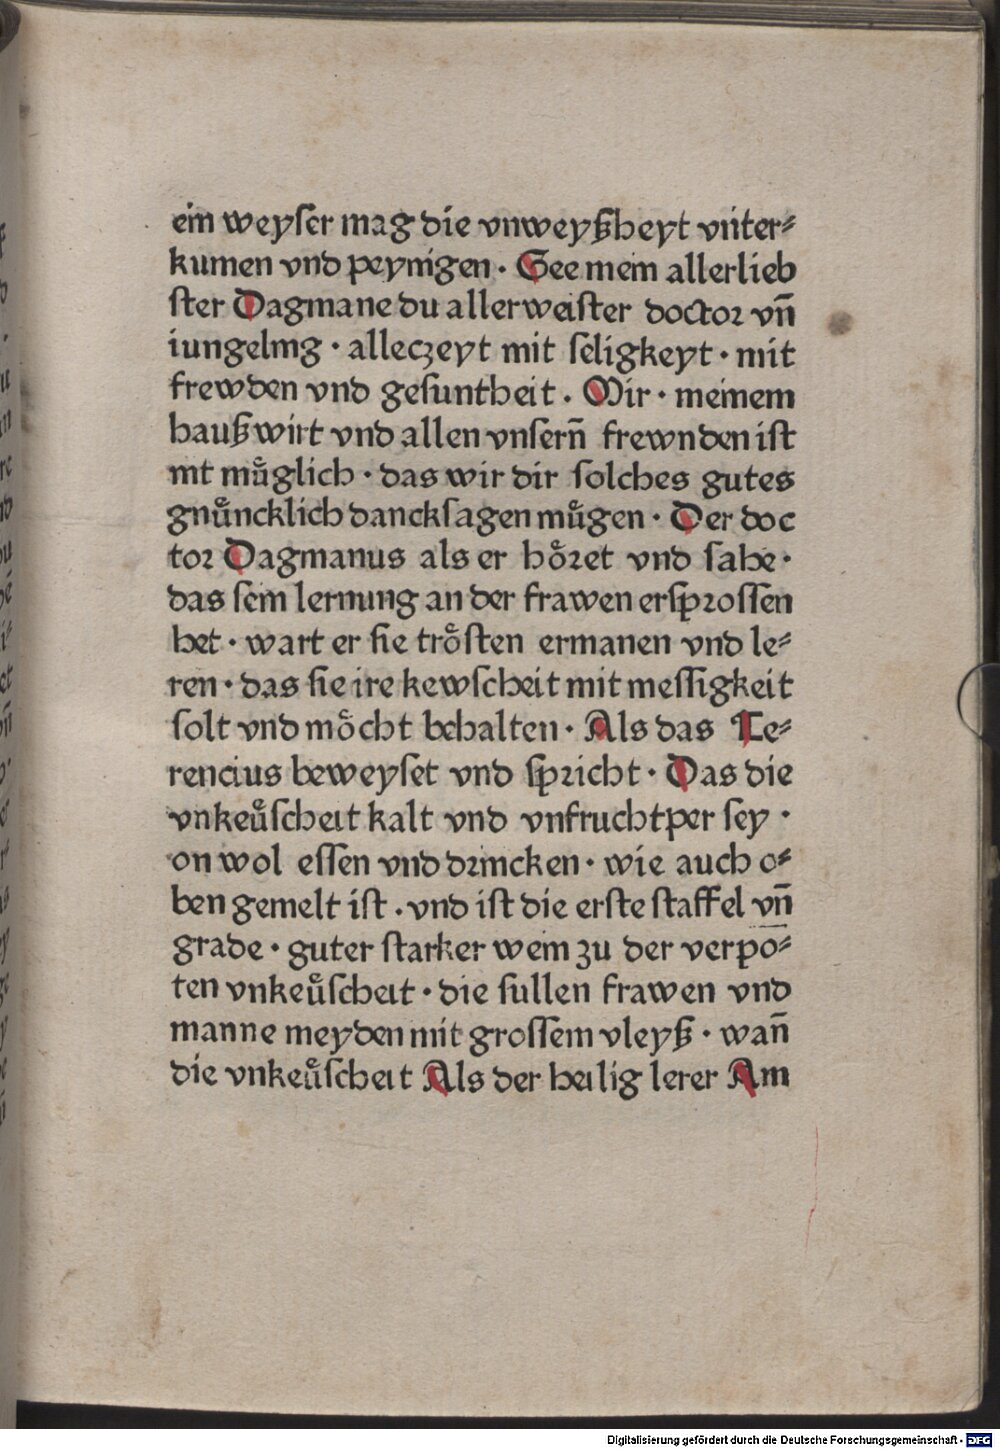 ein weyſer mag die vnweyßheyt vnter⸗
kumen vnd peynigen · Gee mein allerlieb
ſter Dagmane du aller weiſter doctoꝛ vn̄
iungeling · alleczeyt mit ſeligkeyt · mit
frewden vnd geſuntheit · Mir · meinem
haußwirt vnd allen vnſern̄ frewnden iſt
nit muͤglich · das wir dir ſolches gutes
gnuͤncklich danckſagen muͤgen · Der doc
toꝛ Dagmanus als er hoͤꝛet vnd ſahe ·
das ſein lernung an der frawen erſpꝛoſſen
het · wart er ſie troͤſten ermanen vnd le⸗
ren · das ſie ire kewſcheit mit meſſigkeit
ſolt vnd moͤcht behalten · Als das Te⸗
rencius beweyſet vnd ſpꝛicht · Das die
vnkeuͤſcheit kalt vnd vnfruchtper ſey ·
on wol eſſen vnd dꝛincken · wie auch o⸗
ben gemelt iſt · vnd iſt die erſte ſtaffel vn̄
grade · guter ſtarker wein zu der verpo⸗
ten vnkeuͤſcheit · die ſullen frawen vnd
manne meyden mit groſſem vleyß · wan̄
die vnkeuͤſcheit Als der heilig lerer Am
Digitalisierung gefördert durch die Deutsche Forschungsgemeinschaft - DFG